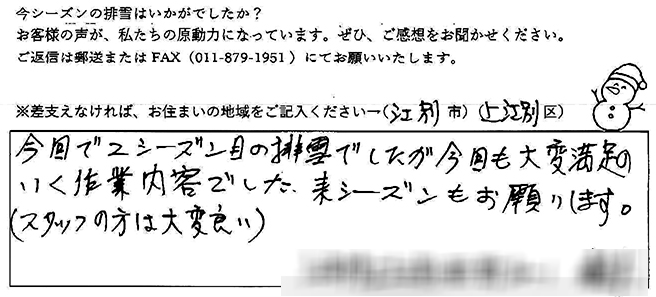 今シーズンの排雪はいかがでしたか？
お客様の声が、私たちの原動力になっています。ぜひ、ご感想をお聞かせください。
ご返信は郵送またはFAX（011-879-1951）にてお願いいたします。
※差支えなければ、お住まいの地域をご記入ください→（江別 市）（上江別 区）
今回で2シーズン目の排雪でしたが今回も大変満足の
いく作業内容でした、来シーズンもお願いします。
（スタッフの方は大変良い）